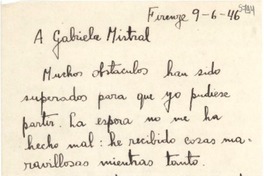 Firenze 9-6-46
A Gabriela Mistral
Muchos obstaculos han sido
superados para que yo pudiese
partir. La espera no me ha
hecho mal: he recibido cozas ma-
ravillosas mientras tanto.